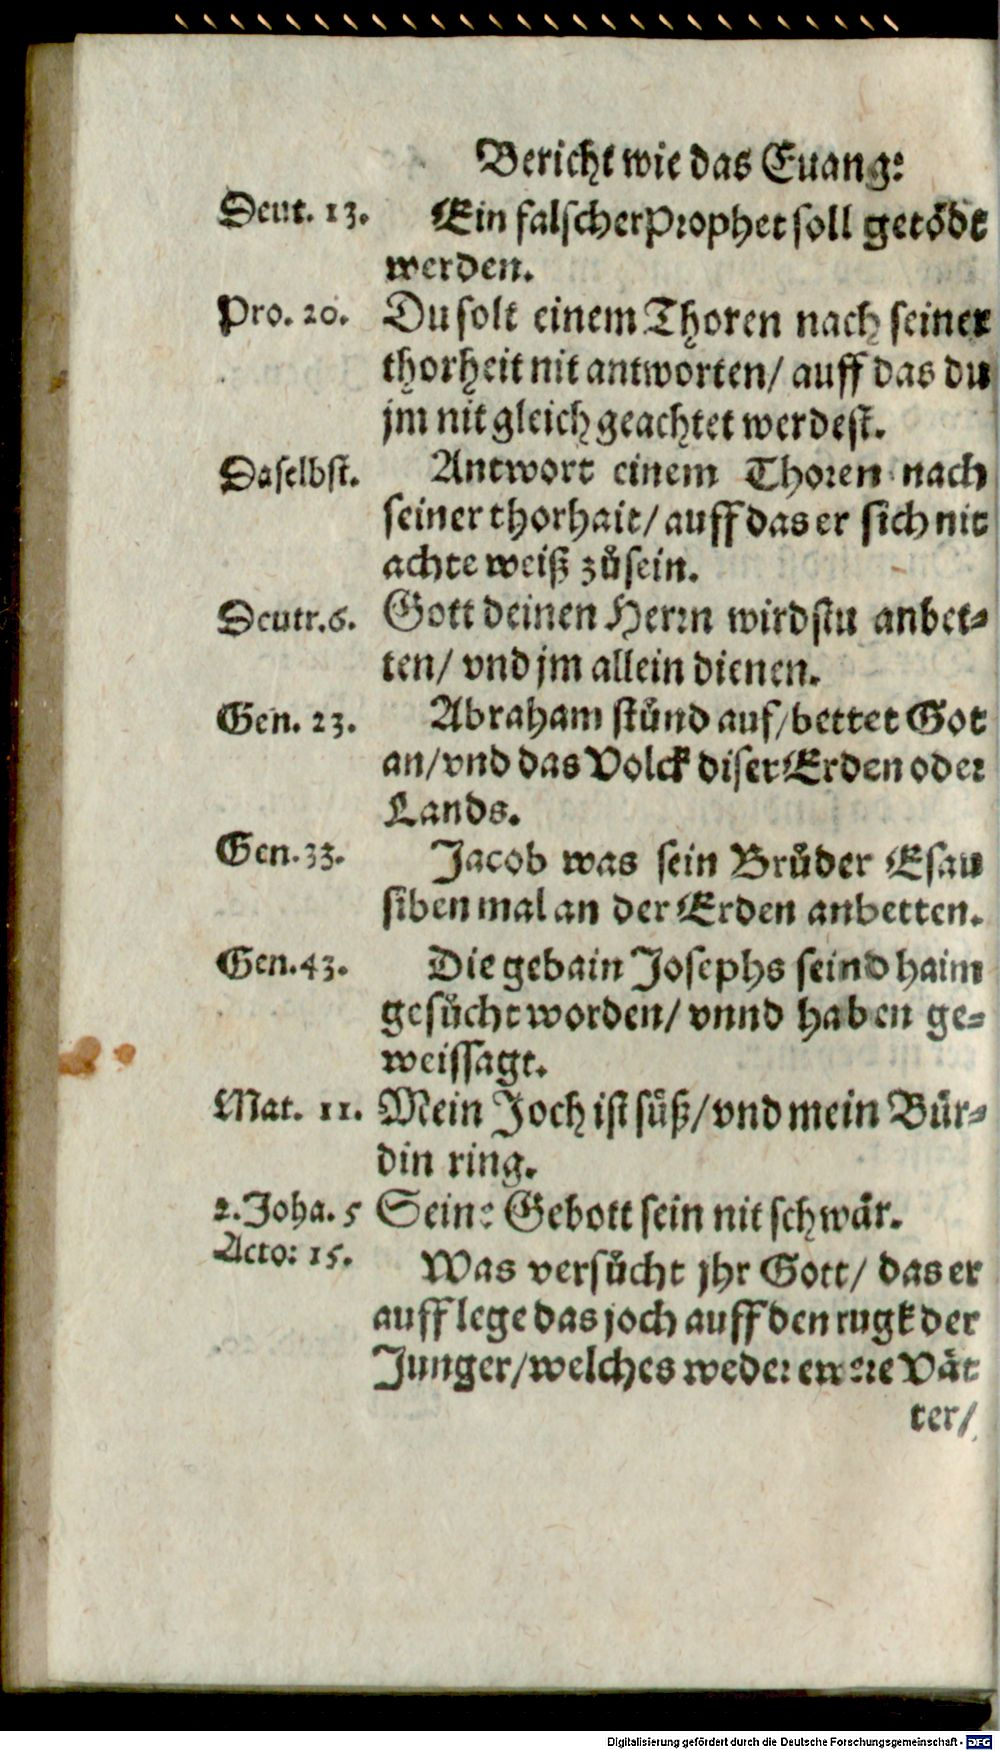 Bericht wie das Euang:
Deut. 13. Ein falscher Prophet soll getödt
werden.
Pro. 20. Du solt einem Thoren nach seiner
thorheit nit antworten/ auff das du
jm nit gleich geachtet werdest.
Daselbst. Antwort einem Thoren nach
seiner thorhait/ auff das er sich nit
achte weiß zůsein.
Deutr. 6. Gott deinen Herrn wirdstu anbet⸗
ten/ vnd jm allein dienen.
Gen. 23. Abraham stůnd auf/ bettet Got
an/ vnd das Volck diser Erden oder
Lands.
Gen. 33. Jacob was sein Brůder Esau
siben mal an der Erden anbetten.
Gen. 43. Die gebain Josephs seind haim
gesůcht worden/ vnnd haben ge⸗
weissagt.
Mat. 11. Mein Joch ist süß/ vnd mein Bür⸗
din ring.
2. Joha. 5 Seine Gebott sein nit schwär.
Acto: 15. Was versůcht jhr Gott/ das er
auff lege das joch auff den rugk der
Junger/ welches weder ewere Vät
ter/
Digitalisierung gefördert durch die Deutsche Forschungsgemeinschaft - DFG